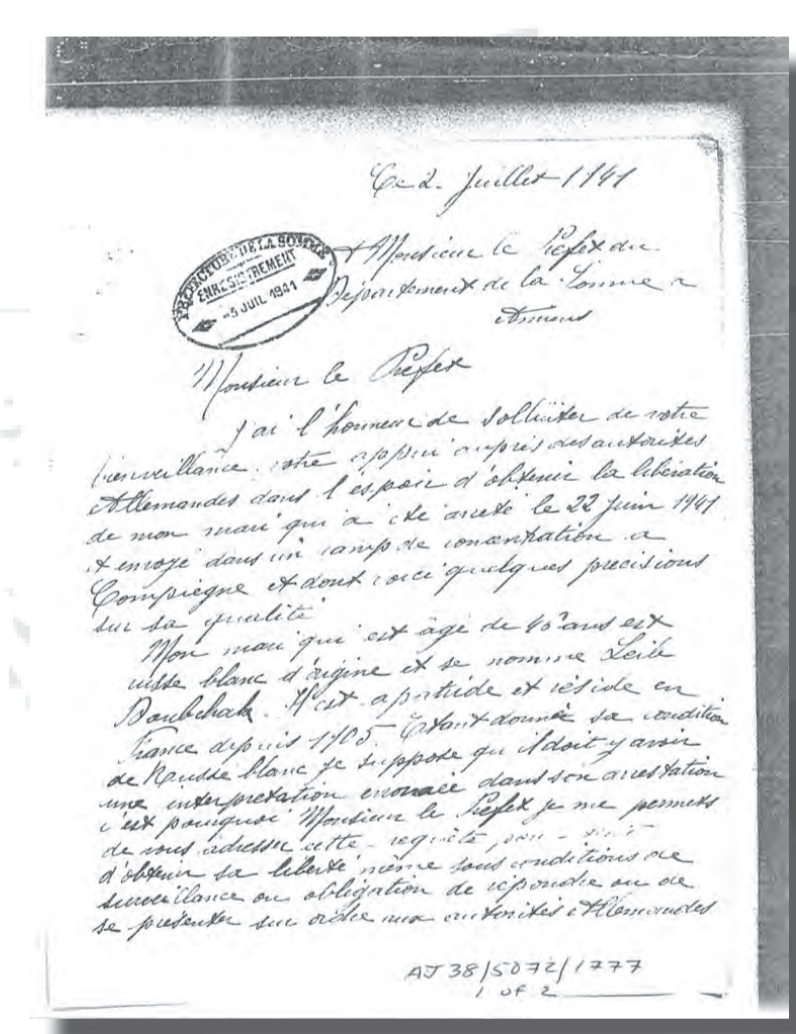 Ce 2 Juillet 1941
PREFECTURE DE LA SOMME
ENREGISTREMENT
-5 JUIL 1941
A Monsieur le Prefet du
Département de la Somme a
Amiens
Monsieur le Prefet
J'ai l'honneur de solliciter de votre
bienveillance votre appui auprès des autorités
Allemandes dans l'espoir d'obtenir la libération
de mon mari qui a été arreté le 22 Juin 1941
et envoyé dans un camp de concentration a
Compiègne et dont voici quelques precisions
sur sa qualité
Mon mari qui est agé de ans est
russe blanc d'origine et se nomme Leib
Boubchak. Il est apatride et réside en
France depuis 1905. Etant donnée sa condition
de Russe blanc je suppose qu'il doit y avoir
une interpretation erronée dans son arrestation
c'est pourquoi Monsieur le Prefet je me permets
de vous adresser cette requête
d'obtenir sa liberté même sous conditions de
surveillance ou obligation de répondre ou de
se présenter sur ordre aux autorités Allemandes
AJ38/5072/1777
1 of 2